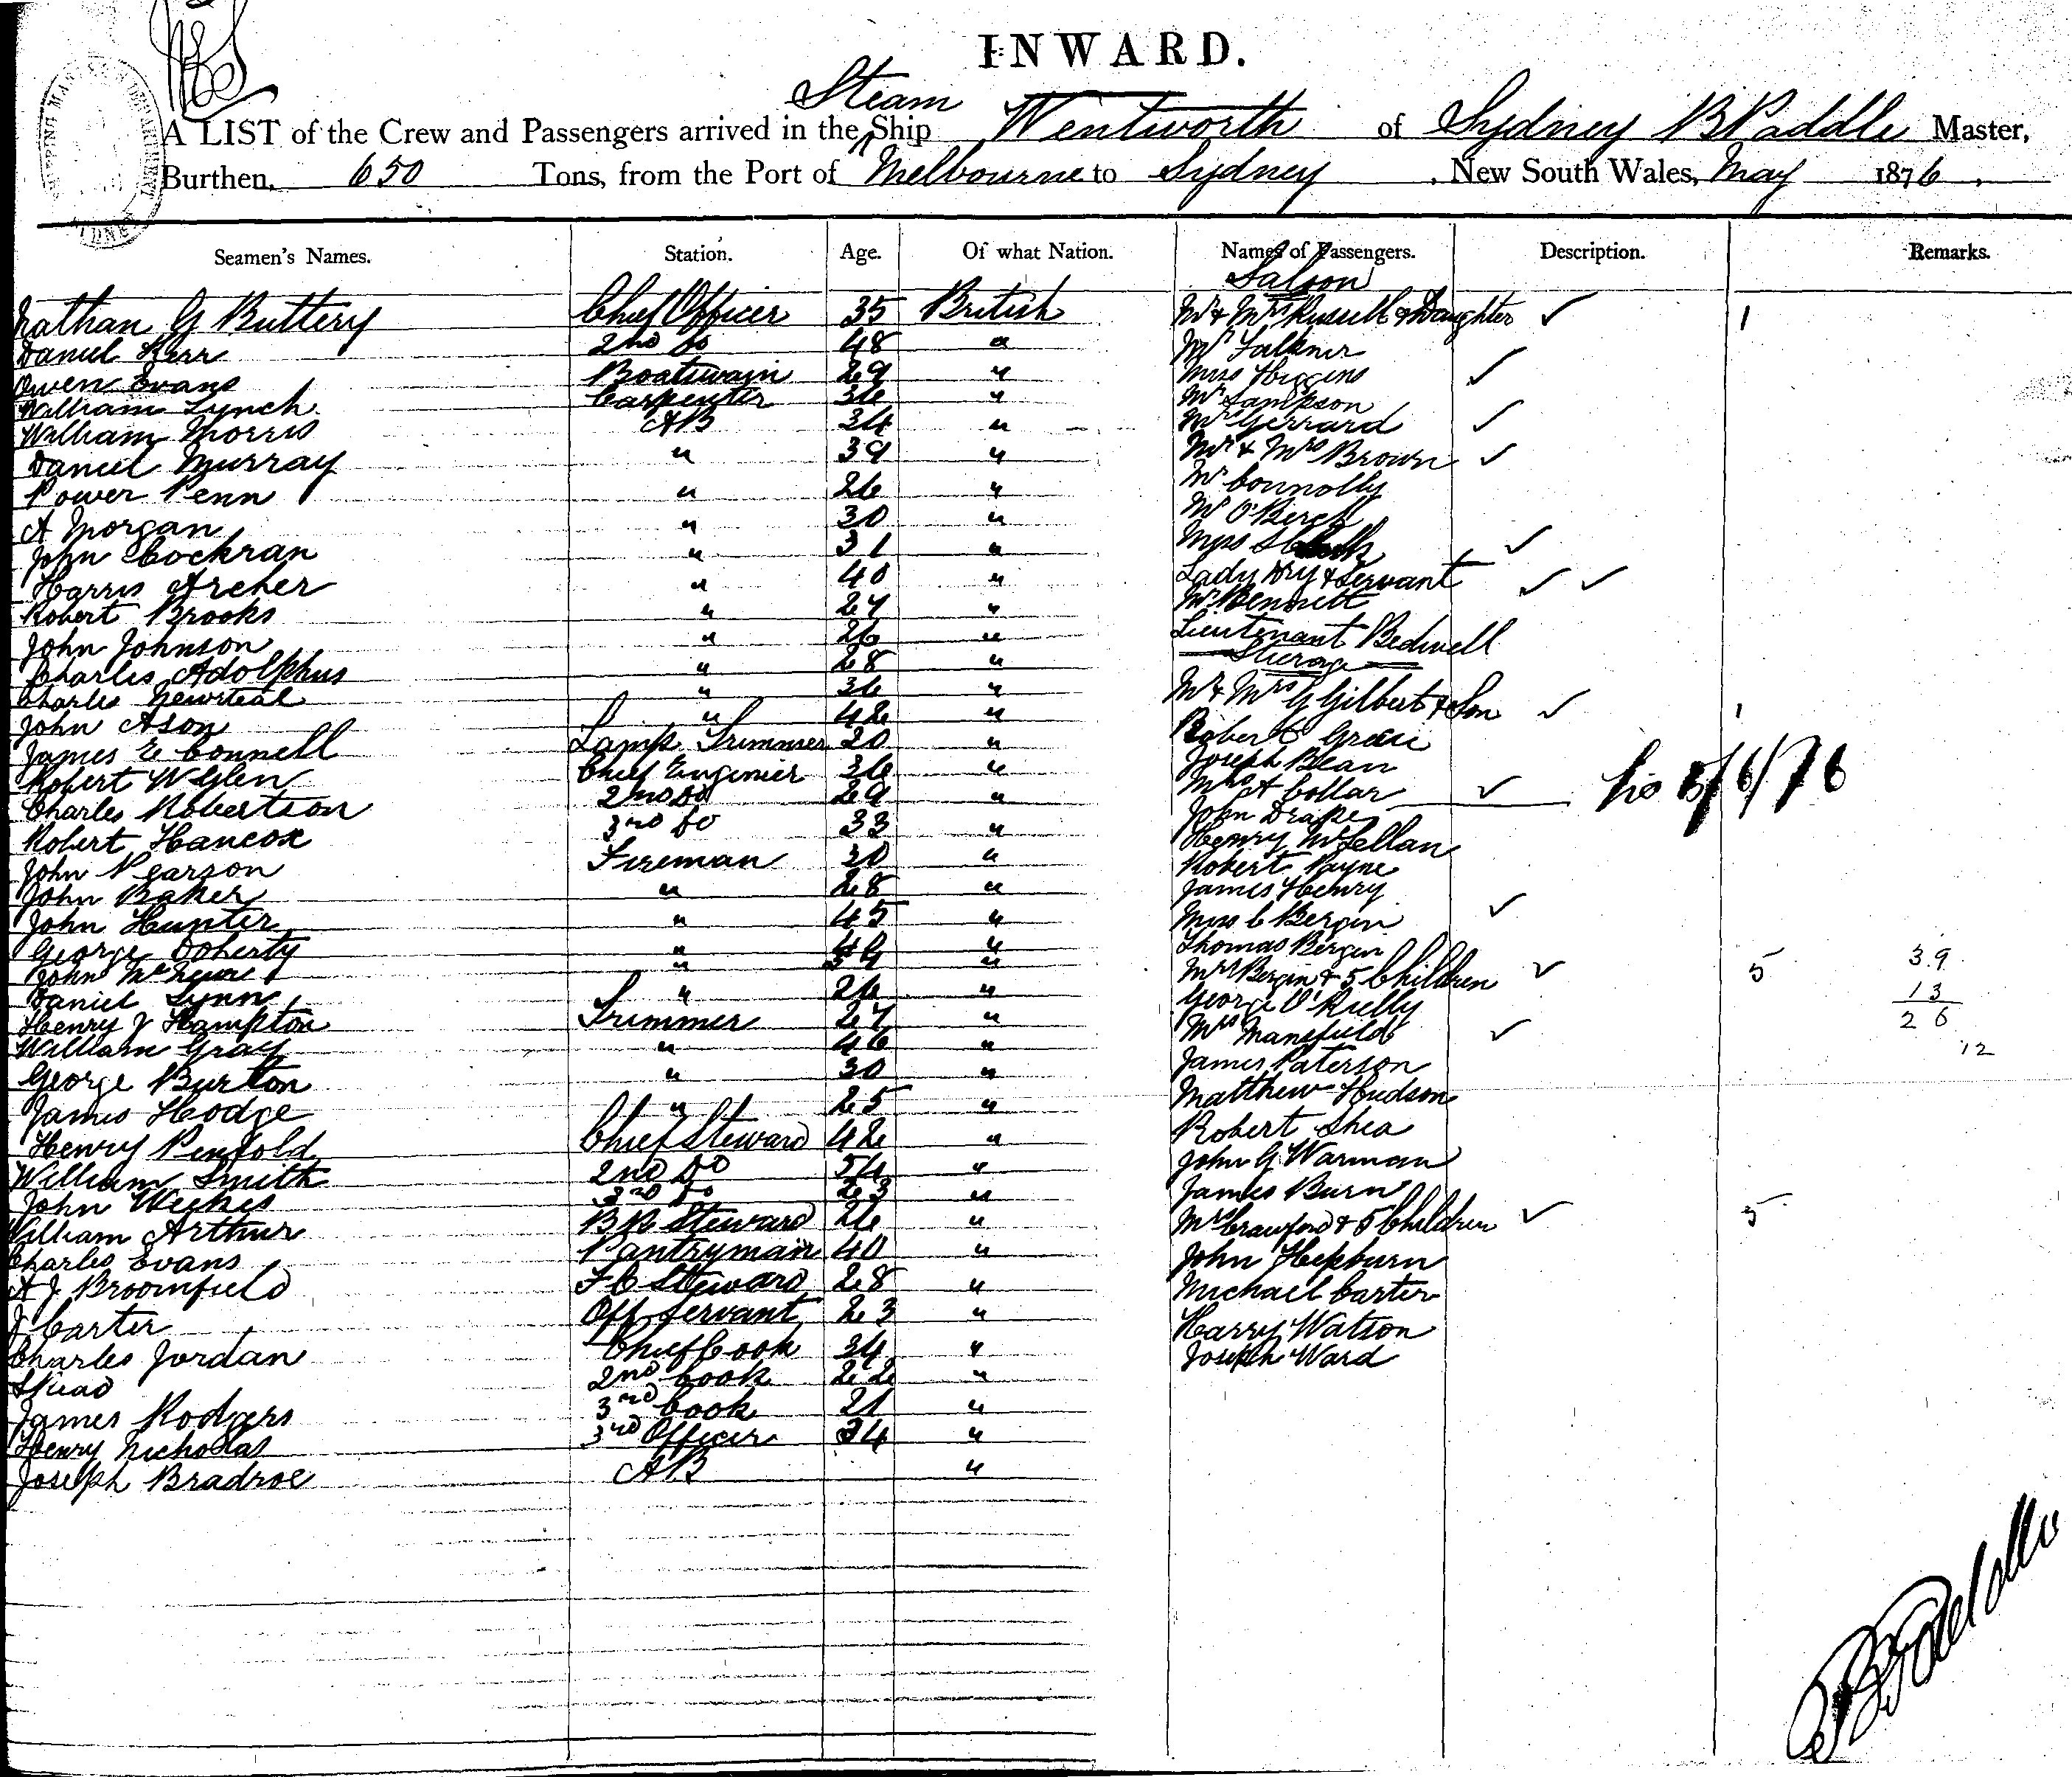 INWARD.
Steam
A LIST of the Crew and Passengers arrived in the Ship Wentworth of Sydney B Paddle Master,
Burthen, 650 Tons, from the Port of Melbourne to Sydney, New South Wales, May 1876.
Seamen's Names. Station. Age. Of what Nation. Names of Passengers. Description. Remarks.
Saloon
Nathan G Buttery Chief Officer 35 British Mr & Mrs Russell & Daughter ✓ 1
Daniel Kerr 2nd Do 48 " Mr Falkner
Owen Evans Boatswain 29 " Miss Higgins ✓
William Lynch Carpenter 36 " Mr Sampson
William Morris AB 34 " Mrs Gerrard ✓
Daniel Murray " 39 " Mr & Mrs Brown ✓
Power Penn " 26 " Mr Connolly
A Morgan " 30 " Mr O'Berck
John Cochran " 31 " Miss ✓
Harris Archer " 40 " Lady Dry & Servant ✓ ✓
Robert Brooks " 27 " Mr Bennett
John Johnson " 26 " Lieutenant Bedwell
Charles Adolphus " 28 " Steerage
Charles " 36 " Mr & Mrs G Gilbert & Son ✓ 1
John Ason " 42 " Robert
James E Connell Lamp Trimmer 20 " Joseph Bean
Robert W Glen Chief Enginier 36 " Mrs A Collar ✓ 8/6/76
Charles Robertson 2nd Do 29 " John Drake
Robert Hancox 3rd Do 33 " Henry McLellan
John Pearson Fireman 30 " Robert Payne
John Baker " 28 " James Henry
John Hunter " 45 " Miss C Bergin ✓
George Doherty " " Thomas Bergin
John " " Mrs Bergin & 5 Children ✓ 5 39
Daniel Lynn " 26 " George O'Rielly 13
Henry J Hampton Trimmer 27 " Mrs Manefield ✓ 26
William Gray " 46 " James Paterson 12
George Burton " 30 " Matthew Hudson
James Hodge " 25 " Robert Shea
Henry Penfold Chief Steward 42 " John G Warman
William Smith 2nd Do 54 " James Burn
John Weekes 3rd Do 23 " Mrs Crawford & 5 Children ✓ 5
William Arthur B R Steward 26 " John Hepburn
Charles Evans Pantryman 40 " Michael Carter
A J Broomfield F C Steward 28 " Harry Watson
J Carter Off Servant 23 " Joseph Ward
Charles Jordan Chief Cook 34 "
2nd Cook 22 "
James Rodgers 3rd Cook 21 "
Henry Nicholas 3rd Officer 34 "
Joseph Bradroe AB "
B Paddle